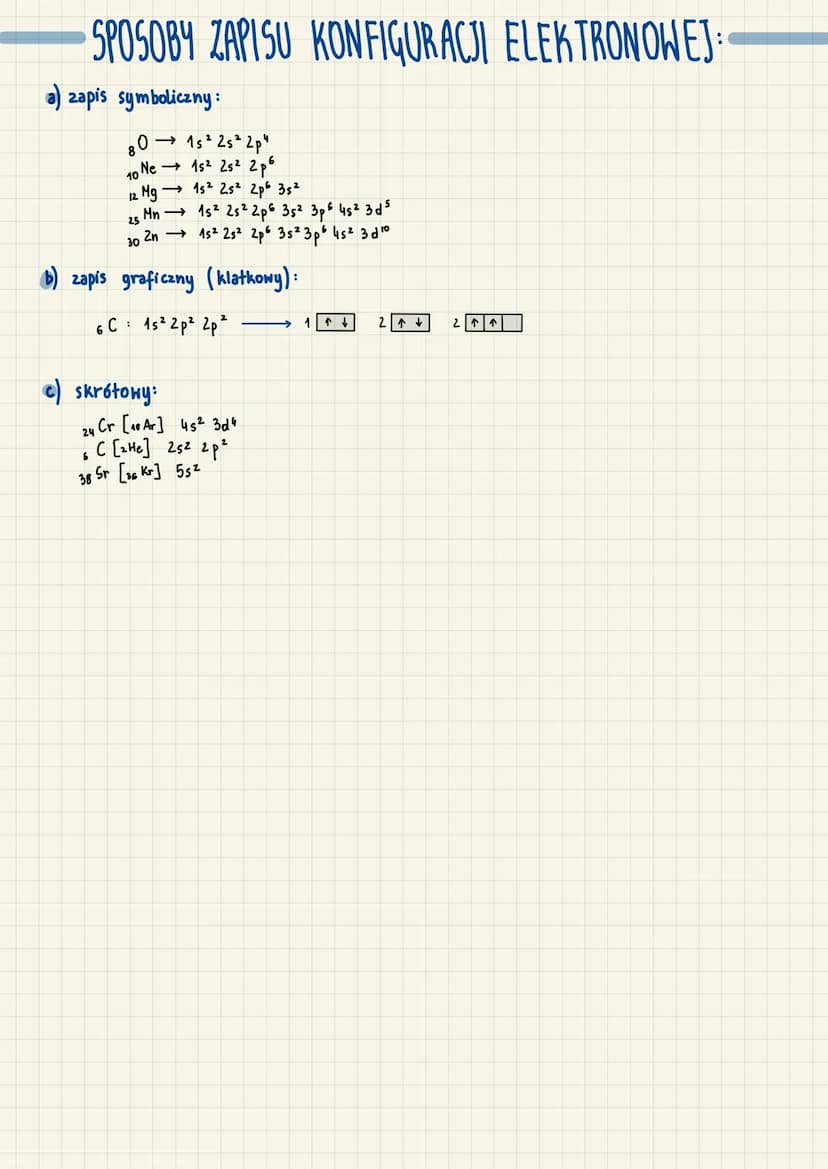 SPOSOBY ZAPISU KONFIGURACJI ELEKTRONOWEJ:
a) zapis symboliczny:
₈O → 1s² 2s² 2p⁴
₁₀Ne → 1s² 2s² 2p⁶
₁₂Mg → 1s² 2s² 2p⁶ 3s²
₂₅Mn → 1s² 2s² 2p⁶ 3s² 3p⁶ 4s² 3d⁵
₃₀Zn → 1s² 2s² 2p⁶ 3s² 3p⁶ 4s² 3d¹⁰
b) zapis graficzny (klatkowy):
₆C : 1s² 2p² 2p² → 1 ↑ ↓ 2 ↑ ↓ 2 ↑ ↑
c) skrótowy:
₂₄Cr [₁₈Ar] 4s² 3d⁴
₆C [₂He] 2s² 2p²
₃₈Sr [₃₆Kr] 5s²